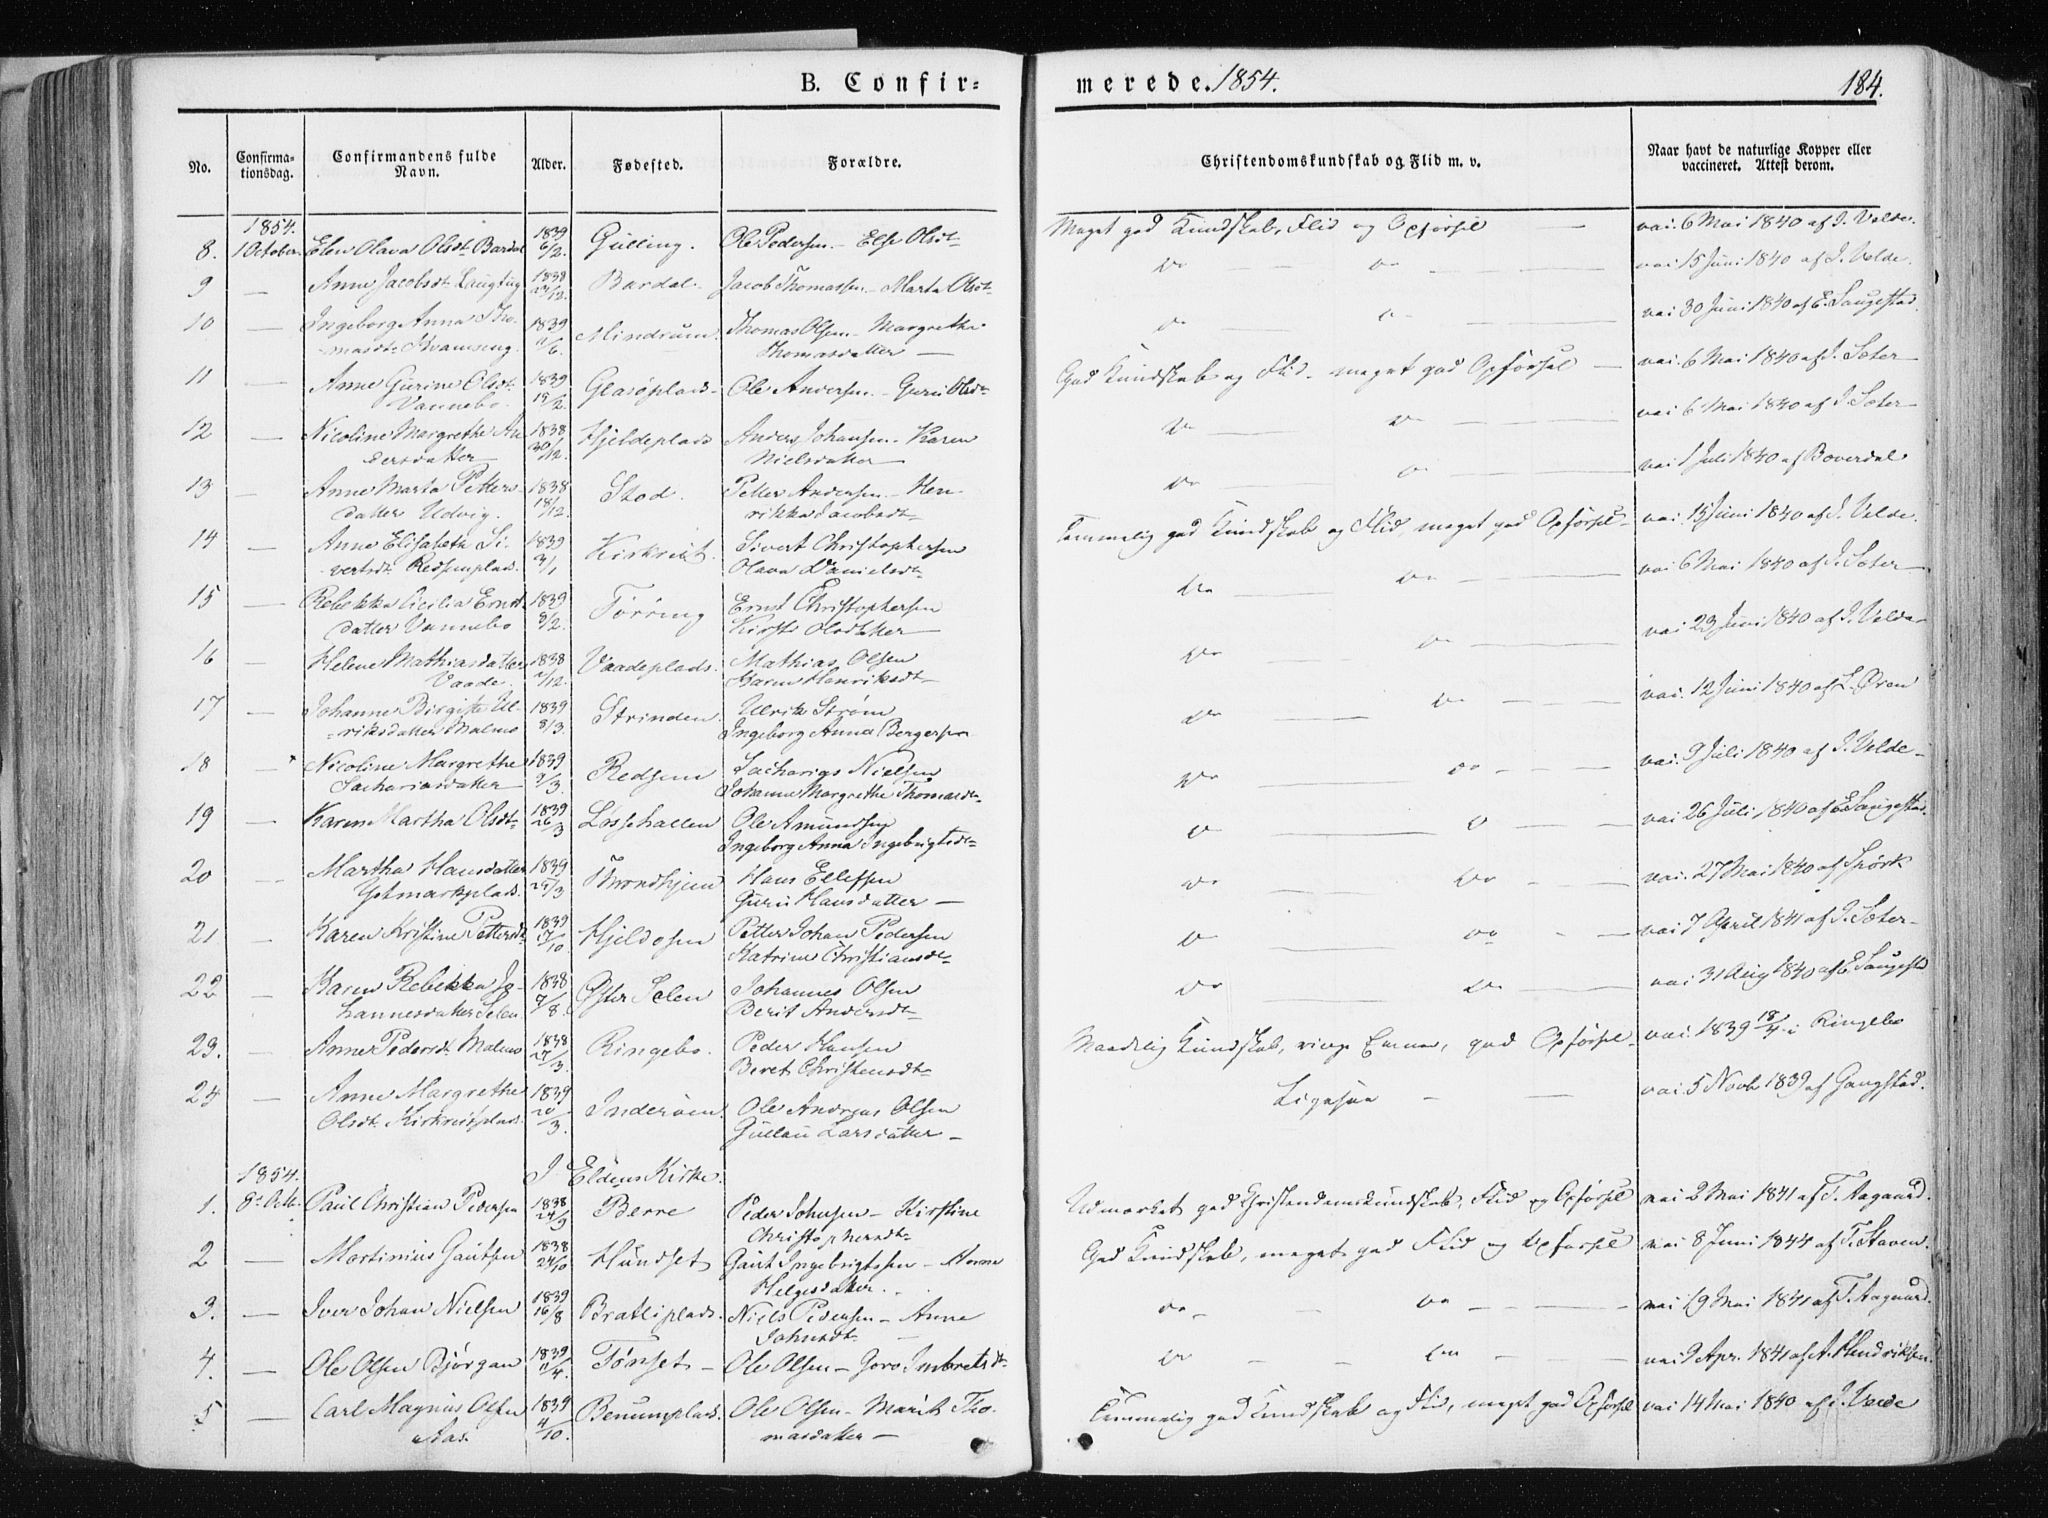 B. Confir=
merede. 1854.
184.
No.
Confirma-
tionsdag.
Confirmandens fulde
Navn.
Alder.
Fødested.
Forældre.
Christendomskundskab og Flid m. v.
Naar havt de naturlige Kopper eller
vaccineret. Attest derom.
1854.
8. 1 October. Elen Olava Olsdt. Bardal 1839 6/2. Gulling. Ole Pedersen - Else Olsdt. Meget god Kundskab, Flid og Opførsel — vac. 6 Mai 1840 af J. Velde.
9 — Anne Jacobsdt. 1838 /12. Bardal Jacob Thomassen - Marta Olsdt. Do — Do — vac. 15 Juni 1840 af J. Velde.
10 — Ingeborg Anna Tho- 1839 /6. Mindrum. Thomas Olsen - Margrethe Do — Do — vac. 30 Juni 1840 af E. Saugestad.
masdt. Kvamseng. Thomasdatter —
11 — Anne Gurine Olsdt. 1839 19/2. Glasøplads. Ole Andersen - Guru Olsdt. God Kundskab og Flid - meget god Opførsel — vac. 6 Mai 1840 af J. Soter
Vannebo.
12 — Nicoline Margrethe An 1838 30/12. Hjeldeplads Anders Johansen - Karen Do — Do — vac. 6 Mai 1840 af J. Soter
dersdatter Nielsdatter
13 — Anne Marta Petters- 1838 18/12. Stod. Petter Andersen - Hen- Do — Do — vac. 1 Juli 1840 af Boverdal
datter Udvig. rikka Jacobsdt.
14 — Anne Elisabeth Si- 1839 3/1 Kirkreit. Sivert Christophersen Temmelig god Kundskab og Flid, meget god Opførsel - vac. 15 Juni 1840 af J. Velde.
vertsdt. Redsemplads. Olava Danielsdt.
15 — Rebekka Cicilia Ernst- 1839 8/2. Tørring Ernst Christophersen Do — Do — vac. 6 Mai 1840 af J. Soter
datter Vannebo Kirsti Olsdatter
16 — Helene Mathiasdatter 1838 /12. Vaadeplads. Mathias Olsen Do — Do — vac. 23 Juni 1840 af J. Velde
Vaade. Karen Henriksdt.
17 — Johanne Birgitte Ul- 1839 8/3. Strinden. Ulrik Strøm Do — Do — vac. 12 Juni 1840 af L. Øren
riksdatter Malmo Ingeborg Anna Bergersen
18 — Nicoline Margrethe 1839 /3. Redsem Sacharias Nielsen Do — Do — vac. 9 Juli 1840 af J. Velde
Sachariasdatter Johanna Margrethe Thomasdt.
19 — Karen Martha Olsdt. 1839 26/3 Løsehallen Ole Amundsen Do — Do — vac. 26 Juli 1840 af E. Saugestad.
Ingeborg Anna Ingebrigtsdt.
20 — Martha Hansdatter 1839 25/3 Trondhjem Hans Ellefsen Do — Do — vac. 27 Mai 1840 af Spørk
Hansdatter —
21 — Karen Kristine Pettersdt. 1839 17/10 Hjeldosen Petter Johan Pedersen Do — Do — vac. 7 April 1841 af J. Soter
Katrine Christiansdt.
22 — Karen Rebekka Jo- 1838 /8. Øster Selen Johannes Olsen Do — Do — vac. 31 Aug 1840 af E. Saugestad
hannesdatter Selen Berit Andersdt.
23. — Anne Pedersdt. Malmo 1838 27/3. Ringebo. Peder Hansen Maadelig Kundskab, ringe Evner, god Opførsel - vac. 1839 18/4 i Ringebo
Beret Christensdt.
24 — Anne Margrethe 1839 20/3. Inderøen. Ole Andreas Olsen Ligesaa — — vac. 5 Novb 1839 af Gangstad.
Olsdt. Kirkreitplads. Gullau Larsdatter —
1854. I Eldens Kirke.
1. 8de Octb. Paul Christian Pedersen 1838 29/9 Berre Peder Johnsen - Kirstine Udmærket god Christendomskundskab, Flid og Opførsel vac 2 Mai 1841 af T. Aagaard.
Christophersdt.
2 — Martinius Gautsen 1838 24/10 Hundset Gaut Ingebrigtsen - God Kundskab, meget god Flid og Opførsel vac 8 Juni 1844 af T. Staven.
Helgesdatter.
3. — Iver Johan Nielsen 1839 16/8 Bratliplads. Niels Pedersen - Anne Do — Do — vac 19 Mai 1841 af T. Aagaard.
Johnsdt.
4. — Ole Olsen Bjørgan 1839 /4. Tønset — Ole Olsen - Goro Imbretsdt. Do — Do — vac 9 Apr. 1841 af A. Hendriksen.
5 — Carl Magnus Olsen 1839 4/10. Benumplads. Ole Olsen - Marit Tho- Temmelig god Kundskab og Flid, meget god Opførsel vac 14 Mai 1840 af J. Velde
Aas. masdatter —